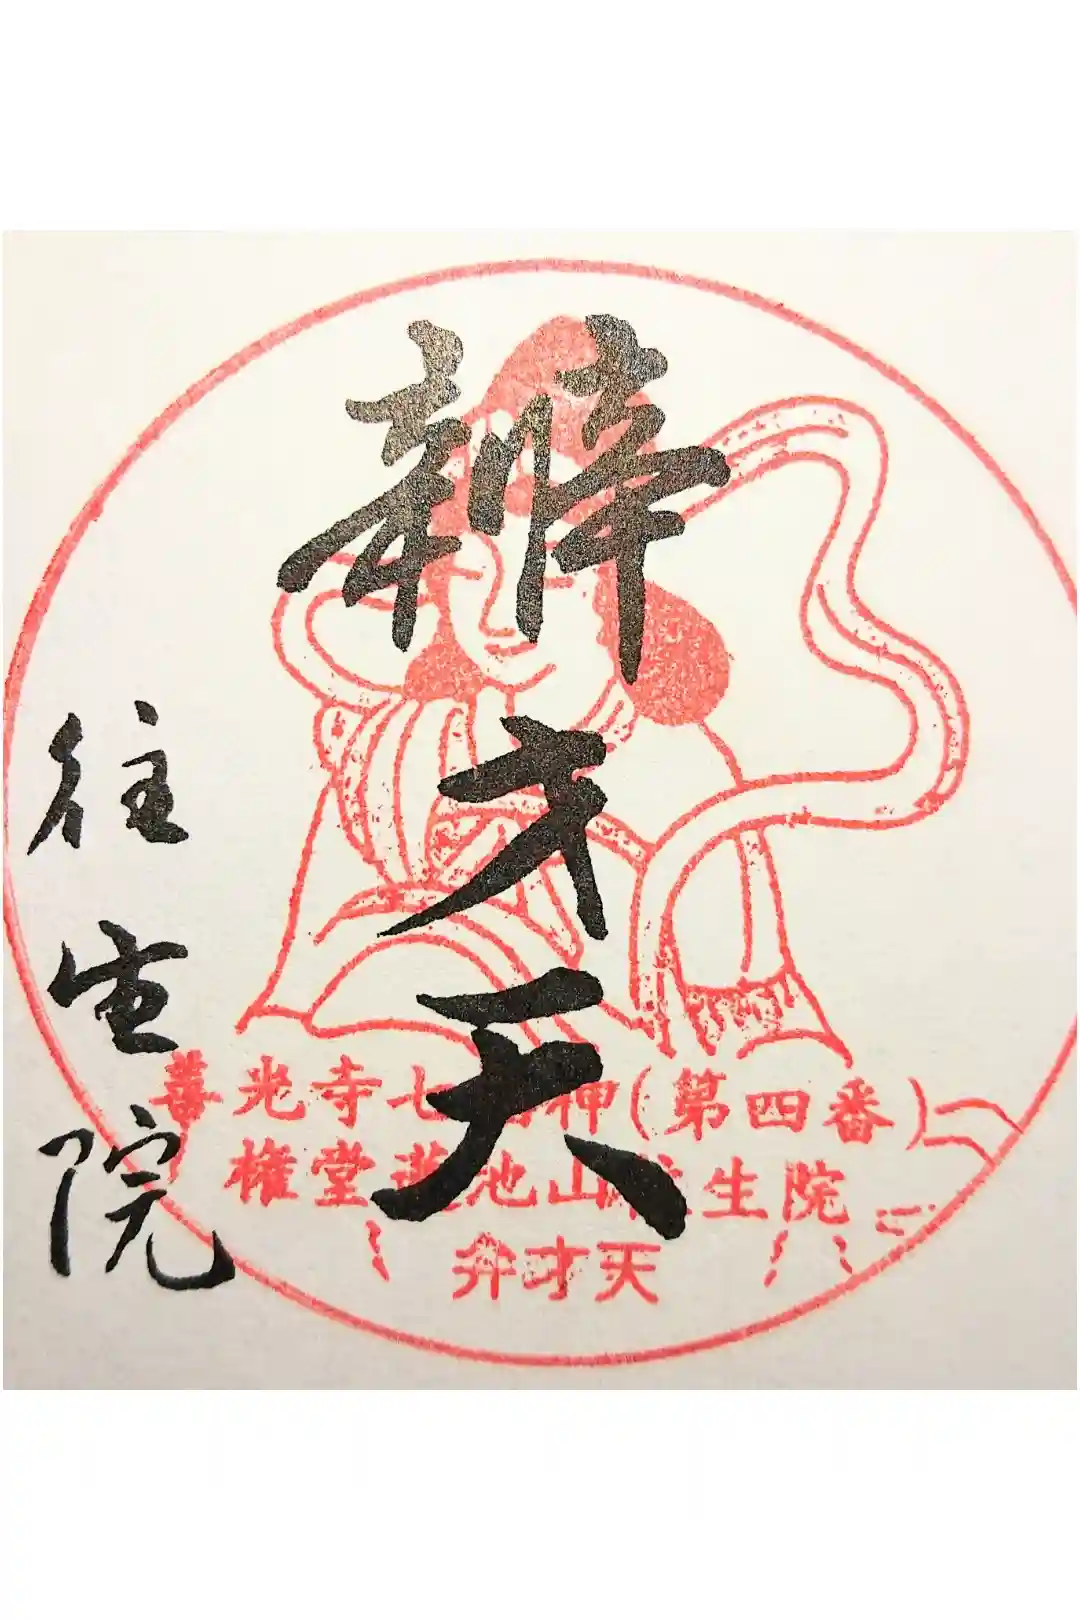 辨才天
往生院
善光寺七福神(第四番)
権堂蓮池山往生院
弁才天